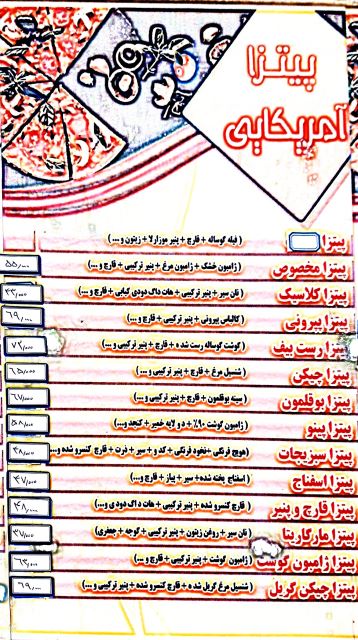 پیتزا
آمریکایی
پیتزا ( فیله گوساله + قارچ + پنیر موزارلا + زیتون و ... )
پیتزا مخصوص ( ژامبون خشک + ژامبون مرغ + پنیر ترکیبی + قارچ و ...) ۵۵٫۰۰۰
پیتزا کلاسیک ( نان سیر + پنیر ترکیبی + هات داگ دودی کبابی + قارچ و ...) ۴۳٫۰۰۰
پیتزا پپرونی ( کالباس پپرونی + پنیر ترکیبی + قارچ و ...) ۶۹٫۰۰۰
پیتزا رست بیف ( گوشت گوساله رست شده + قارچ + پنیر ترکیبی و ...) ۷۳٫۰۰۰
پیتزا چیکن ( شنسل مرغ + قارچ + پنیر ترکیبی و ... ) ۶۵٫۰۰۰
پیتزا بوقلمون ( سینه بوقلمون + قارچ + پنیر ترکیبی و ...) ۶۷٫۰۰۰
پیتزا پینو ( ژامبون گوشت ۹۰٪ + دو لایه خمیر + کنجد و...) ۵۸٫۰۰۰
پیتزا سبزیجات ( هویج فرنگی + نخود فرنگی + کدو + سیر + ذرت + قارچ کنسرو شده و... ۴۸٫۰۰۰
پیتزا اسفناج ( اسفناج پخته شده + سیر + پیاز + قارچ و...) ۴۷٫۰۰۰
پیتزا قارچ و پنیر ( قارچ کنسرو شده + پنیر ترکیبی + هات داگ دودی و...) ۴۸٫۰۰۰
پیتزا مارگاریتا ( نان سیر + روغن زیتون + پنیر ترکیبی + گوجه + جعفری) ۳۷٫۰۰۰
پیتزا ژامبون گوشت ( ژامبون گوشت + پنیر ترکیبی + قارچ و ...) ۶۳٫۰۰۰
پیتزا چیکن گریل ( شنسل مرغ گریل شده + قارچ کنسرو شده + پنیر ترکیبی و...) ۶۹٫۰۰۰